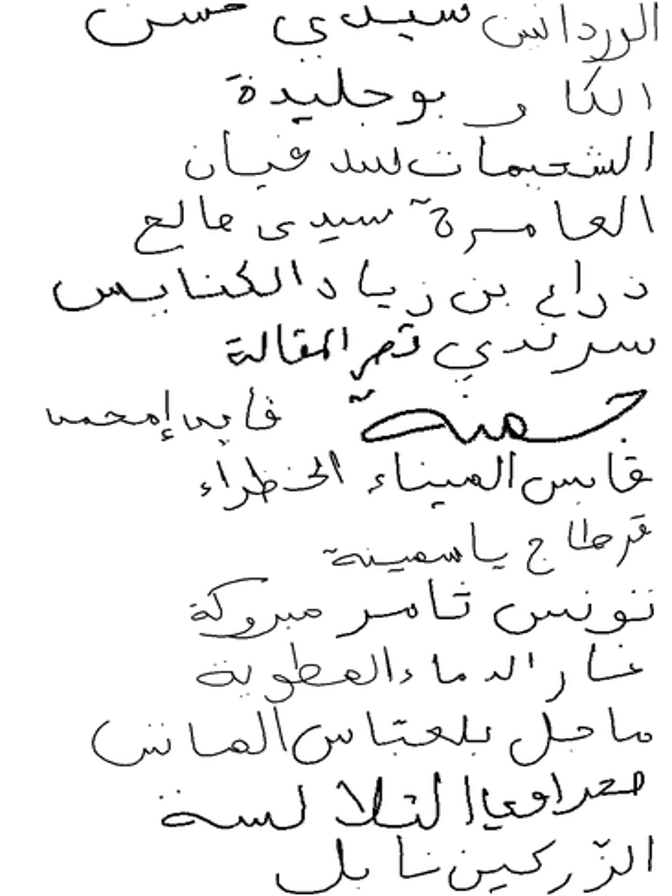 الوردانين سيدي حسن
الكاف بوجليدة
الشعيمات سد غيان
العامرة سيدي صالح
ذراع بن زياد الكنايس
سرندي تمر المقالة
حمنة قايد إمحمد
قابس الميناء الخضراء
قرطاج ياسمينة
تونس ثامر مبروكة
غار الدماء العطوية
ماجل بلعباس الماتش
الثلالسة
الزركين نابل